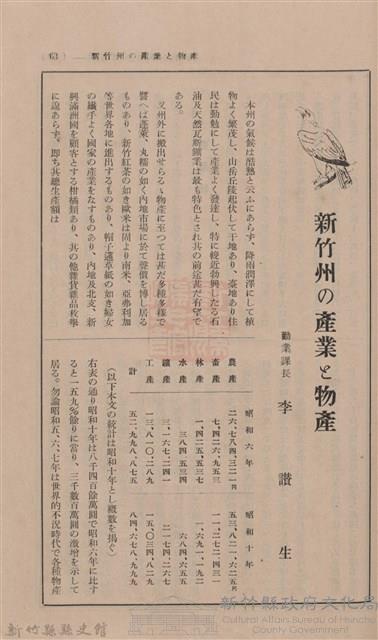 (63) 新竹州の產業と物產
新竹州の產業と物產
勸業課長 李讃生
本州の氣候は酷熱と云ふにあらず、降雨潤澤にして植
物よく繁茂し、山岳丘陵起伏して平地あり、臺地あり住
民は勤勉にして產業よく發達し、特に輓近勃興したる石
油及天然瓦斯鑛業は最も特色とされ其の前途甚だ有望で
ある。
又州外に搬出せらるゝ物產に至つては甚だ多種多樣で
譬へば蓬萊、丸糯の如く內地市場に於て聲價を博し居る
ものあり、新竹紅茶の如き歐米は固より南米、亞弗利加
等世界各地に進出するものあり、帽子蓪草紙の如き婦女
の纖手よく國家の產業をなすものあり、內地及北支、新
興滿洲國を顧客とする柑橘類あり、其の他雜貨雜品枚擧
に遑あらず。卽ち其總生產額は
昭和六年 昭和十年
農產 二六、七八四、三二一円 五三、八二一、六二五円
畜產 七、四二六、九五三 一一、二七二、四三一
林產 一、四二五、五三七 一、六九一、一九二
水產 三八四、五三四 六八四、六五五
鑛產 三、一六七、二四一 二、一七四、二六七
工產 一三、八一〇、二八九 一五、〇三四、八二九
計 五二、九九八、八七五 八四、六七八、九九九
(以下本文の統計は昭和十年とし槪數を揭ぐ)
右表の通り昭和十年は八千四百餘萬圓で昭和六年に比す
ると一五九%餘りに當り、三千數百萬圓の激增を示して
居る。勿論昭和五、六、七年は世界的不況時代で各種物產
新竹縣縣史館
新竹縣政府文化局
Cultural Affairs Bureau of Hsinchu County Government